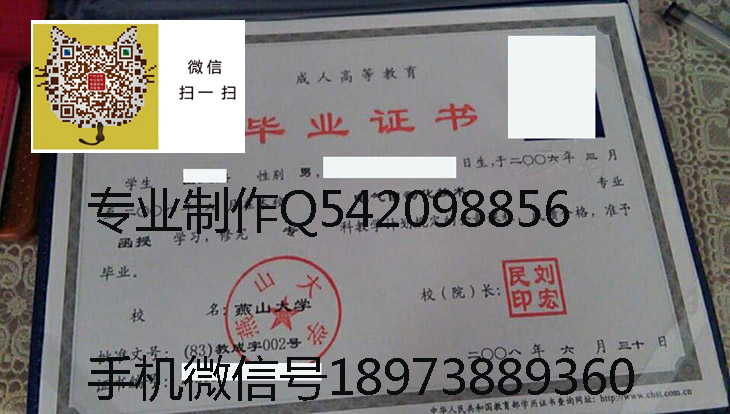 微信
扫一扫
成人高等教育
毕业证书
学生 性别 男, 日生,于二〇〇六年 三 月
专业
专业制作Q542098856
函授 学习,修完 专 科教学计划规定 格,准予
毕业。
校 名:燕山大学
校(院)长:
刘宏民印
燕山大学
批准文号:(83)教成字002号
二〇〇八年 六 月 三十日
手机微信号18973889360
中华人民共和国教育部学历证书查询网址:http://www.chsi.com.cn